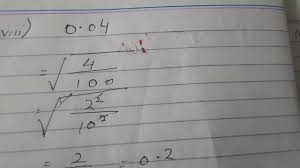 viii) 0.04
= √4/100
= √2²/10²
= 2/ = 0.2